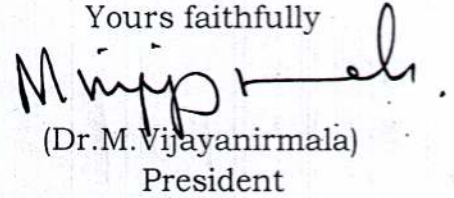 Yours faithfully
(Dr.M.Vijayanirmala)
President